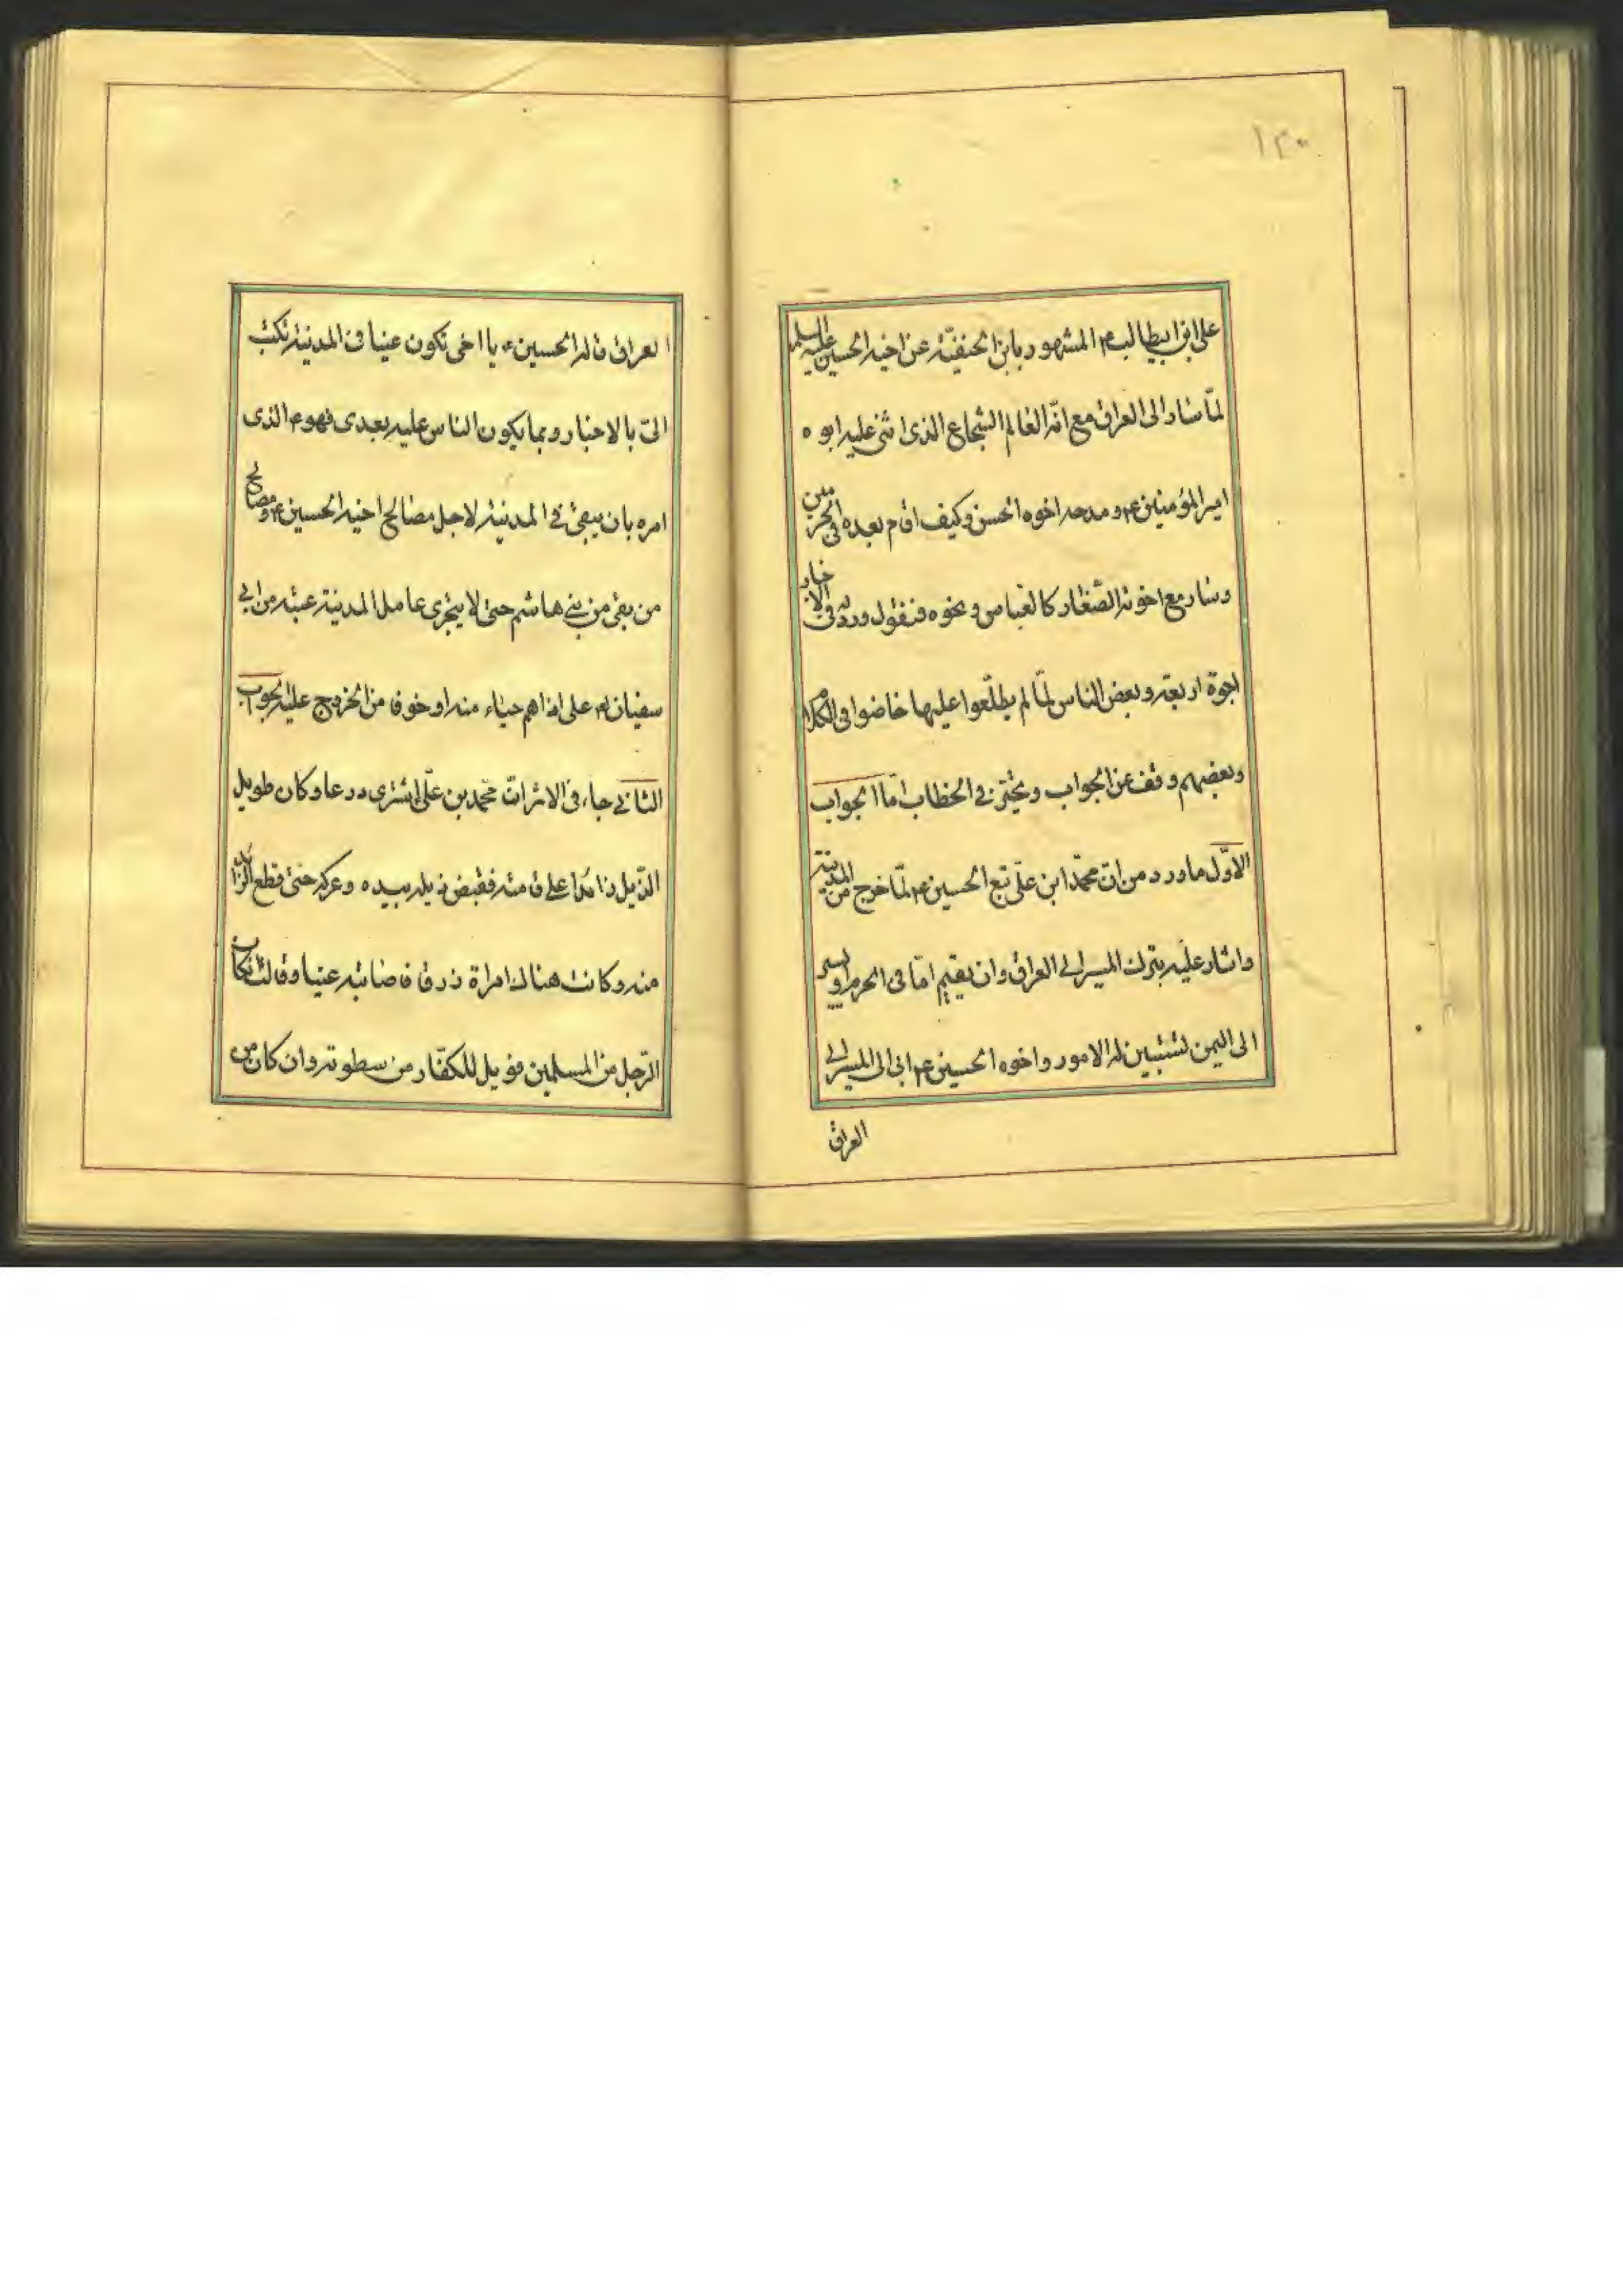 ١٣٠
على ابن ابيطالب ع المشهور بابن الحنفيّة عن اخيه الحسين عليه السلم
لمّا سار الى العراق مع انّه العالم الشجاع الذى اثنى عليه ابوه
امير المؤمنين ع و مدحه اخوه الحسن وكيف اقام بعده فى الحرمين
وسار مع اخوته الصّغار كالعباس ونحوه فنقول ورد له فى الاخبار
اجوة اربعة وبعض الناس لمّا لم يطلّعوا عليها خاضوا فى الكلام
وبعضهم وقف عن الجواب وتحيّر فى الخطاب امّا الجواب
الاوّل ماورد من انّ محمّد ابن علىّ تبع الحسين ع لمّا خرج من المدينة
واشار عليه بترك المسير الى العراق وان يقيم امّا فى الحرم او يسير
الى اليمن لتستبين له الامور واخوه الحسين ع ابى الى المسير الى
العراق
العراق قال له الحسين ع يا اخى تكون عينا فى المدينة تكتب
الىّ بالاخبار وبما يكون الناس عليه بعدى فهو ع الذى
امره بان يبقى فى المدينة لاجل مصالح اخيه الحسين ع ومصالح
من بقى من بنى هاشم حتى لا يتجرى عامل المدينة عتبة من ابى
سفيان له على اذاهم حياء منه او خوفا من الخروج عليه الجواب
الثانى جاء فى الاثر انّ محمّد بن علىّ اشترى درعا وكان طويل
الذّيل زائدا على قامته فقبض ذيله بيده وعركه حتى قطع الزائد
منه وكانت هناك امراة زرقا فاصابته عينا وقالت ان كان
الرّجل من المسلمين فويل للكفّار من سطوته وان كان من